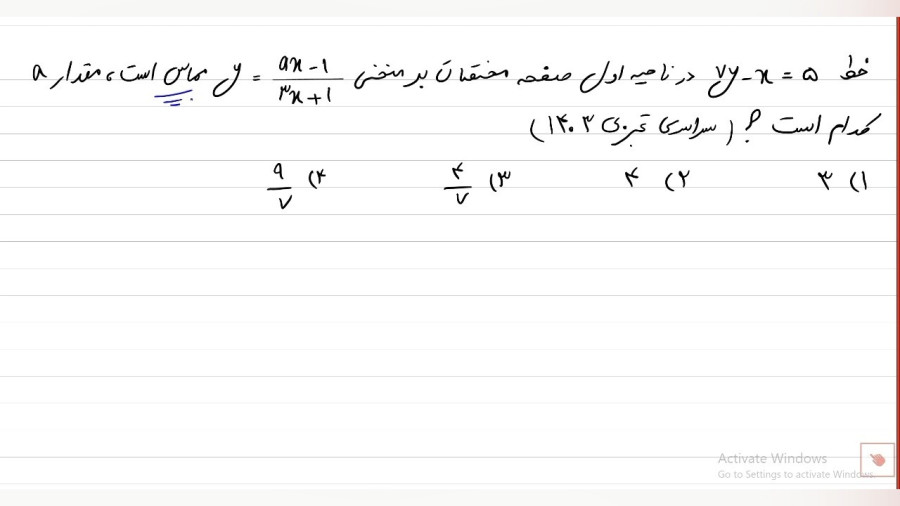 خط ۷y - x = ۵ در ناحیه اول صفحه مختصات بر منحنی y = (ax - 1)/(۳x + 1) مماس است، مقدار a
کدام است؟ (سراسری تجربی ۱۴۰۳)
۱) ۳ ۲) ۴ ۳) ۴/۷ ۴) ۹/۷
Activate Windows
Go to Settings to activate Windows.